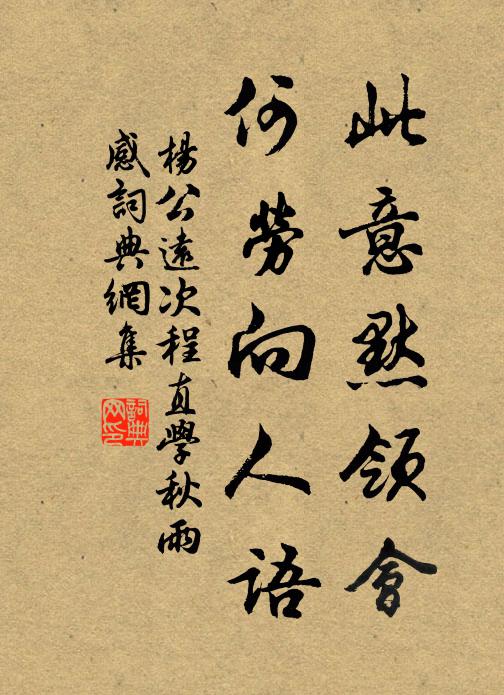 此意默領會
何勞向人語
楊公遠次程直學秋雨
感詞典網集
詞典
网印